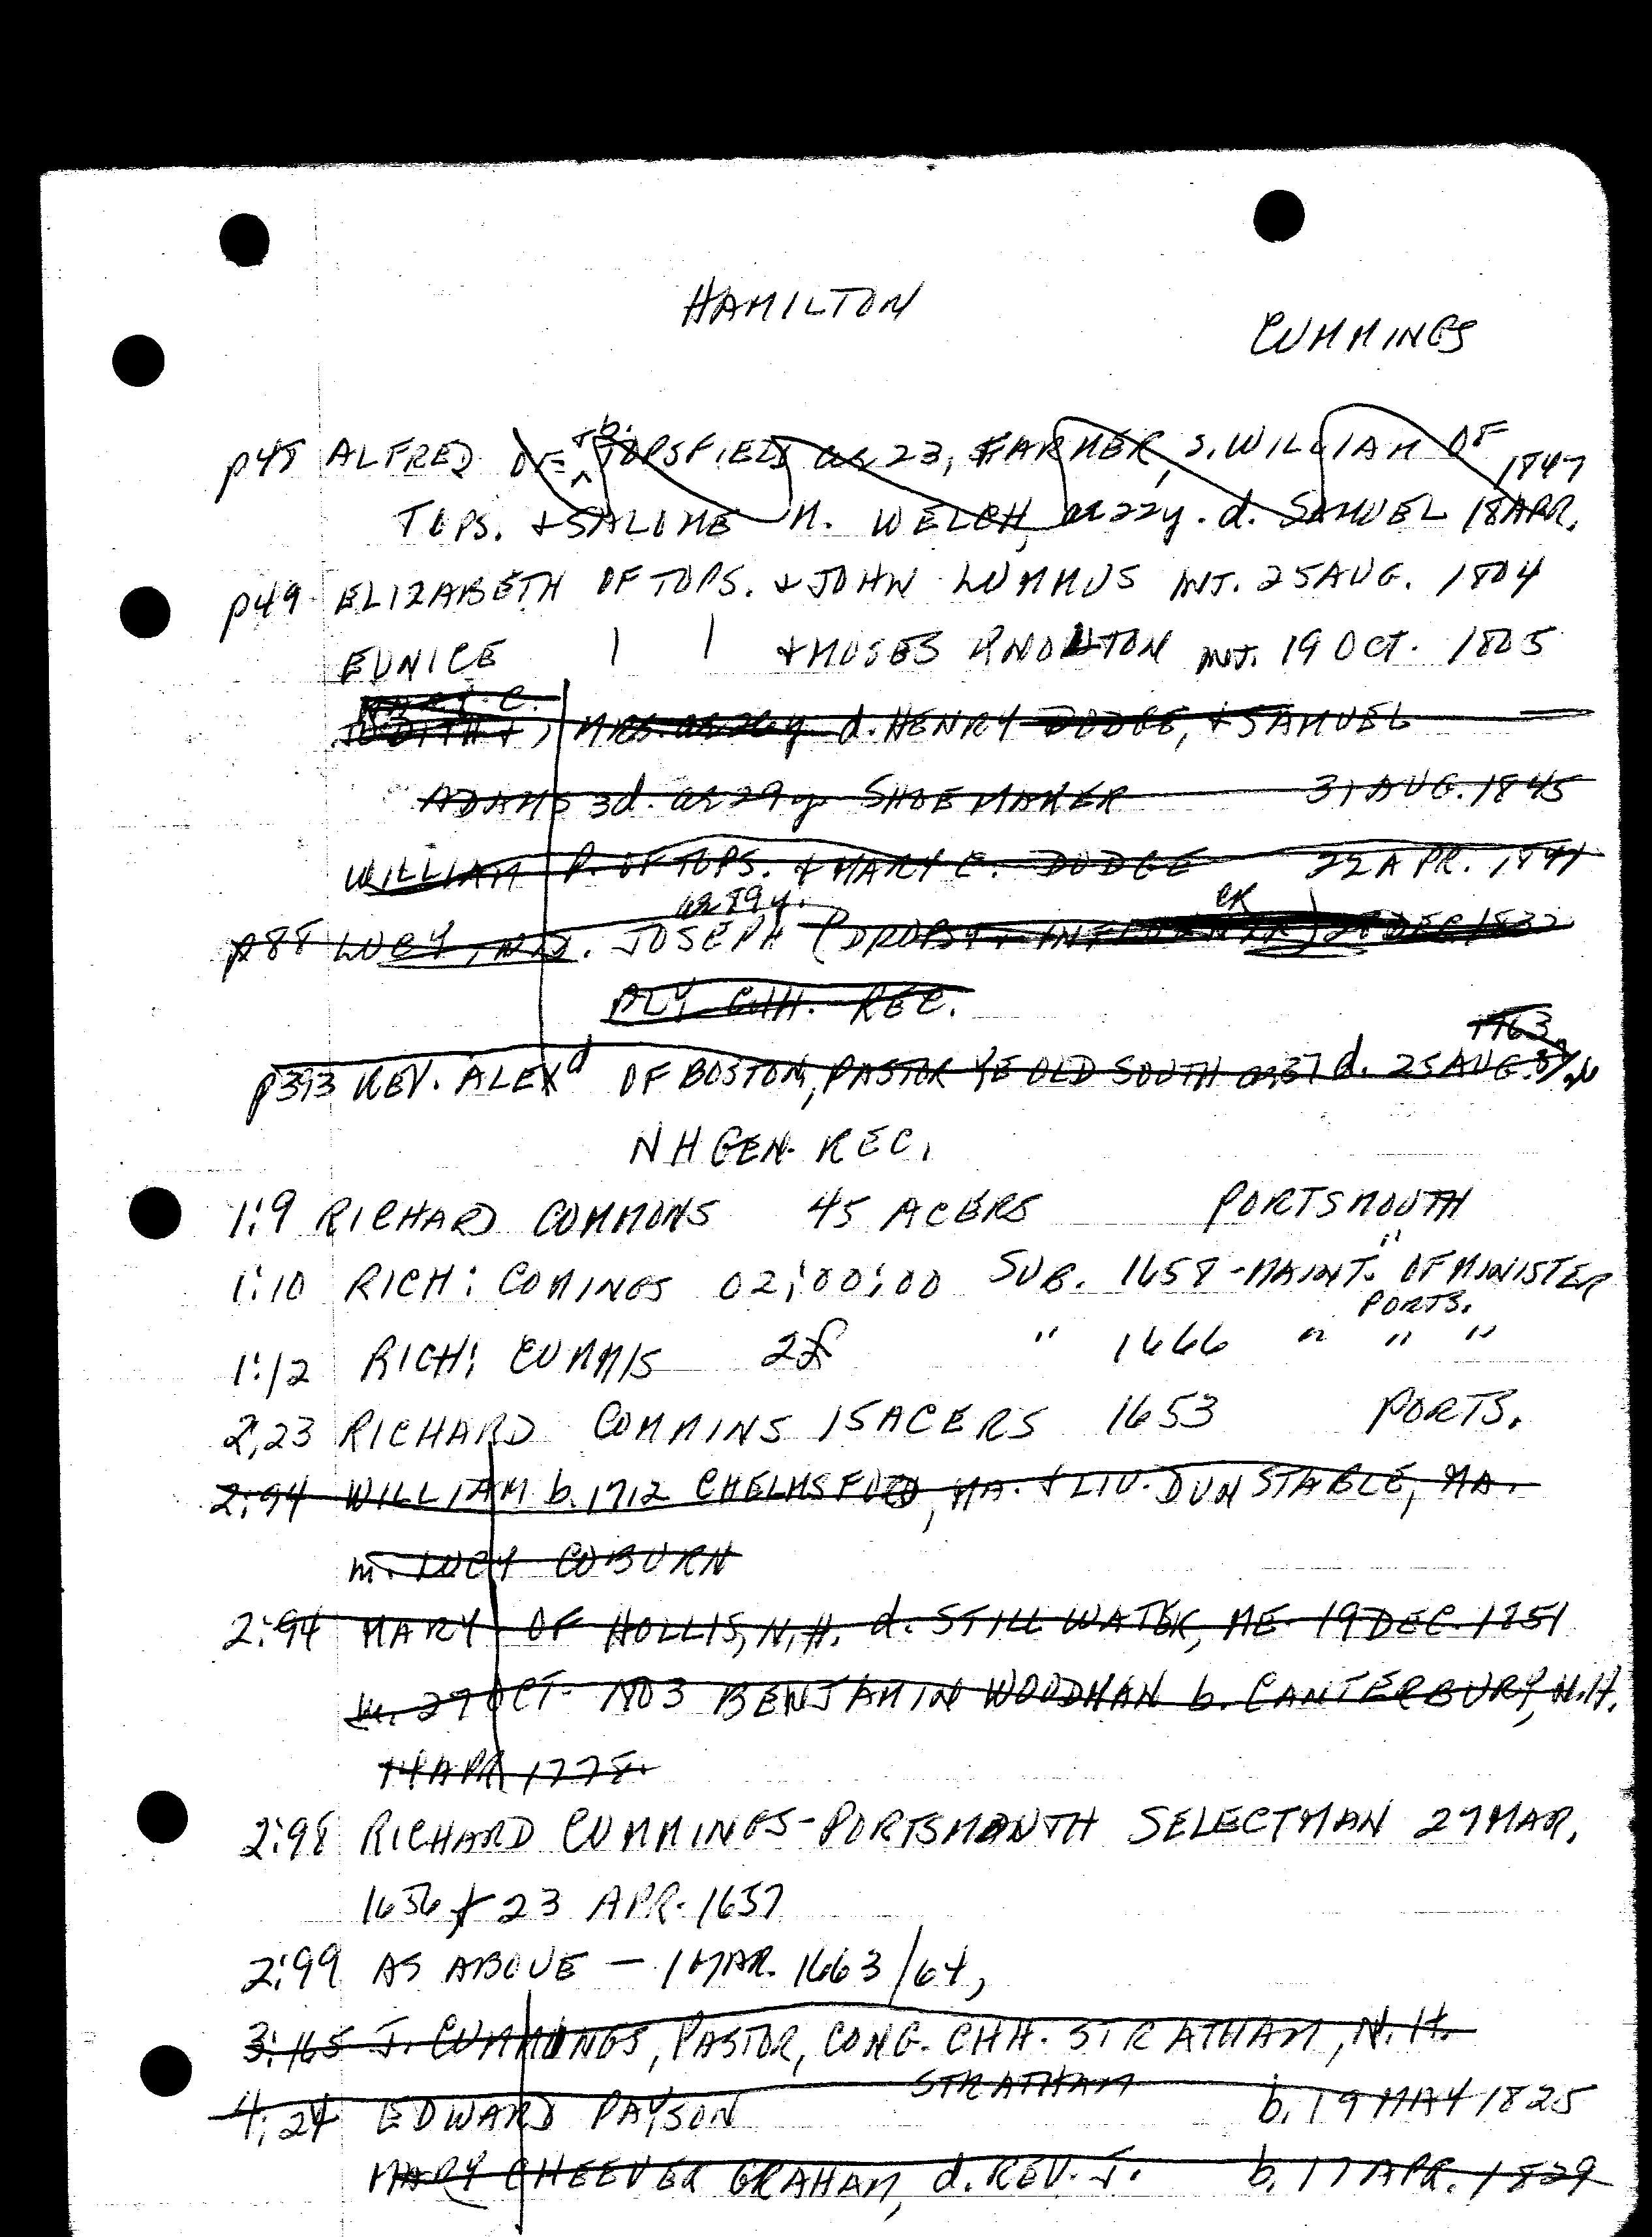 HAMILTON
CUMMINGS
p48 ALFRED OF TOPSFIELD ae 23, FARMER, s. WILLIAM OF 1847
TOPS. + SALOME M. WELCH, ae 22y. d. SAMUEL 18 APR.
p49 ELIZABETH OF TOPS. + JOHN LUMMUS INT. 25 AUG. 1804
EUNICE | | + MOSES KNOWLTON INT. 19 OCT. 1805
MARY C.
JUDITH +, MRS. ae 26y d. HENRY DODGE, + SAMUEL
ADAMS 3d. ae 29y SHOEMAKER 31 AUG. 1845
WILLIAM P. OF TOPS. + MARY C. DODGE 22 APR. 1841
ae 89y. CR
p88 LUCY, wid. JOSEPH (DROPSY + ) 28 DEC. 1832
CHH. REC.
1763
p393 REV. ALEXd OF BOSTON, PASTOR YE OLD SOUTH ae 37 d. 25 AUG.
NH GEN. REC.
1:9 RICHARD COMMONS 45 ACERS PORTSMOUTH
1:10 RICH: COMINGS 02:00:00 SUB. 1658 - MAINT. OF MINISTER
PORTS.
1:12 RICH: CUMMIS 2£ " 1666 " " "
2,23 RICHARD COMMINS 15 ACERS 1653 PORTS.
2:94 WILLIAM b. 1712 CHELMSFORD, MA. + LIV. DUNSTABLE, MA.
m. LUCY COBURN
2:94 MARY OF HOLLIS, N.H. d. STILLWATER, ME. 19 DEC. 1851
m. 27 OCT. 1803 BENJAMIN WOODMAN b. CANTERBURY, N.H.
14 APR 1778.
2:98 RICHARD CUMMINGS - PORTSMOUTH SELECTMAN 27 MAR.
1656 + 23 APR. 1657
2:99 AS ABOVE — 1 MAR. 1663/64,
3:165 J. CUMMINGS, PASTOR, CONG. CHH. STRATHAM, N.H.
STRATHAM
4:24 EDWARD PAYSON b. 19 MAY 1825
MARY CHEEVER GRAHAM, d. REV. J. b. 17 APR. 1829